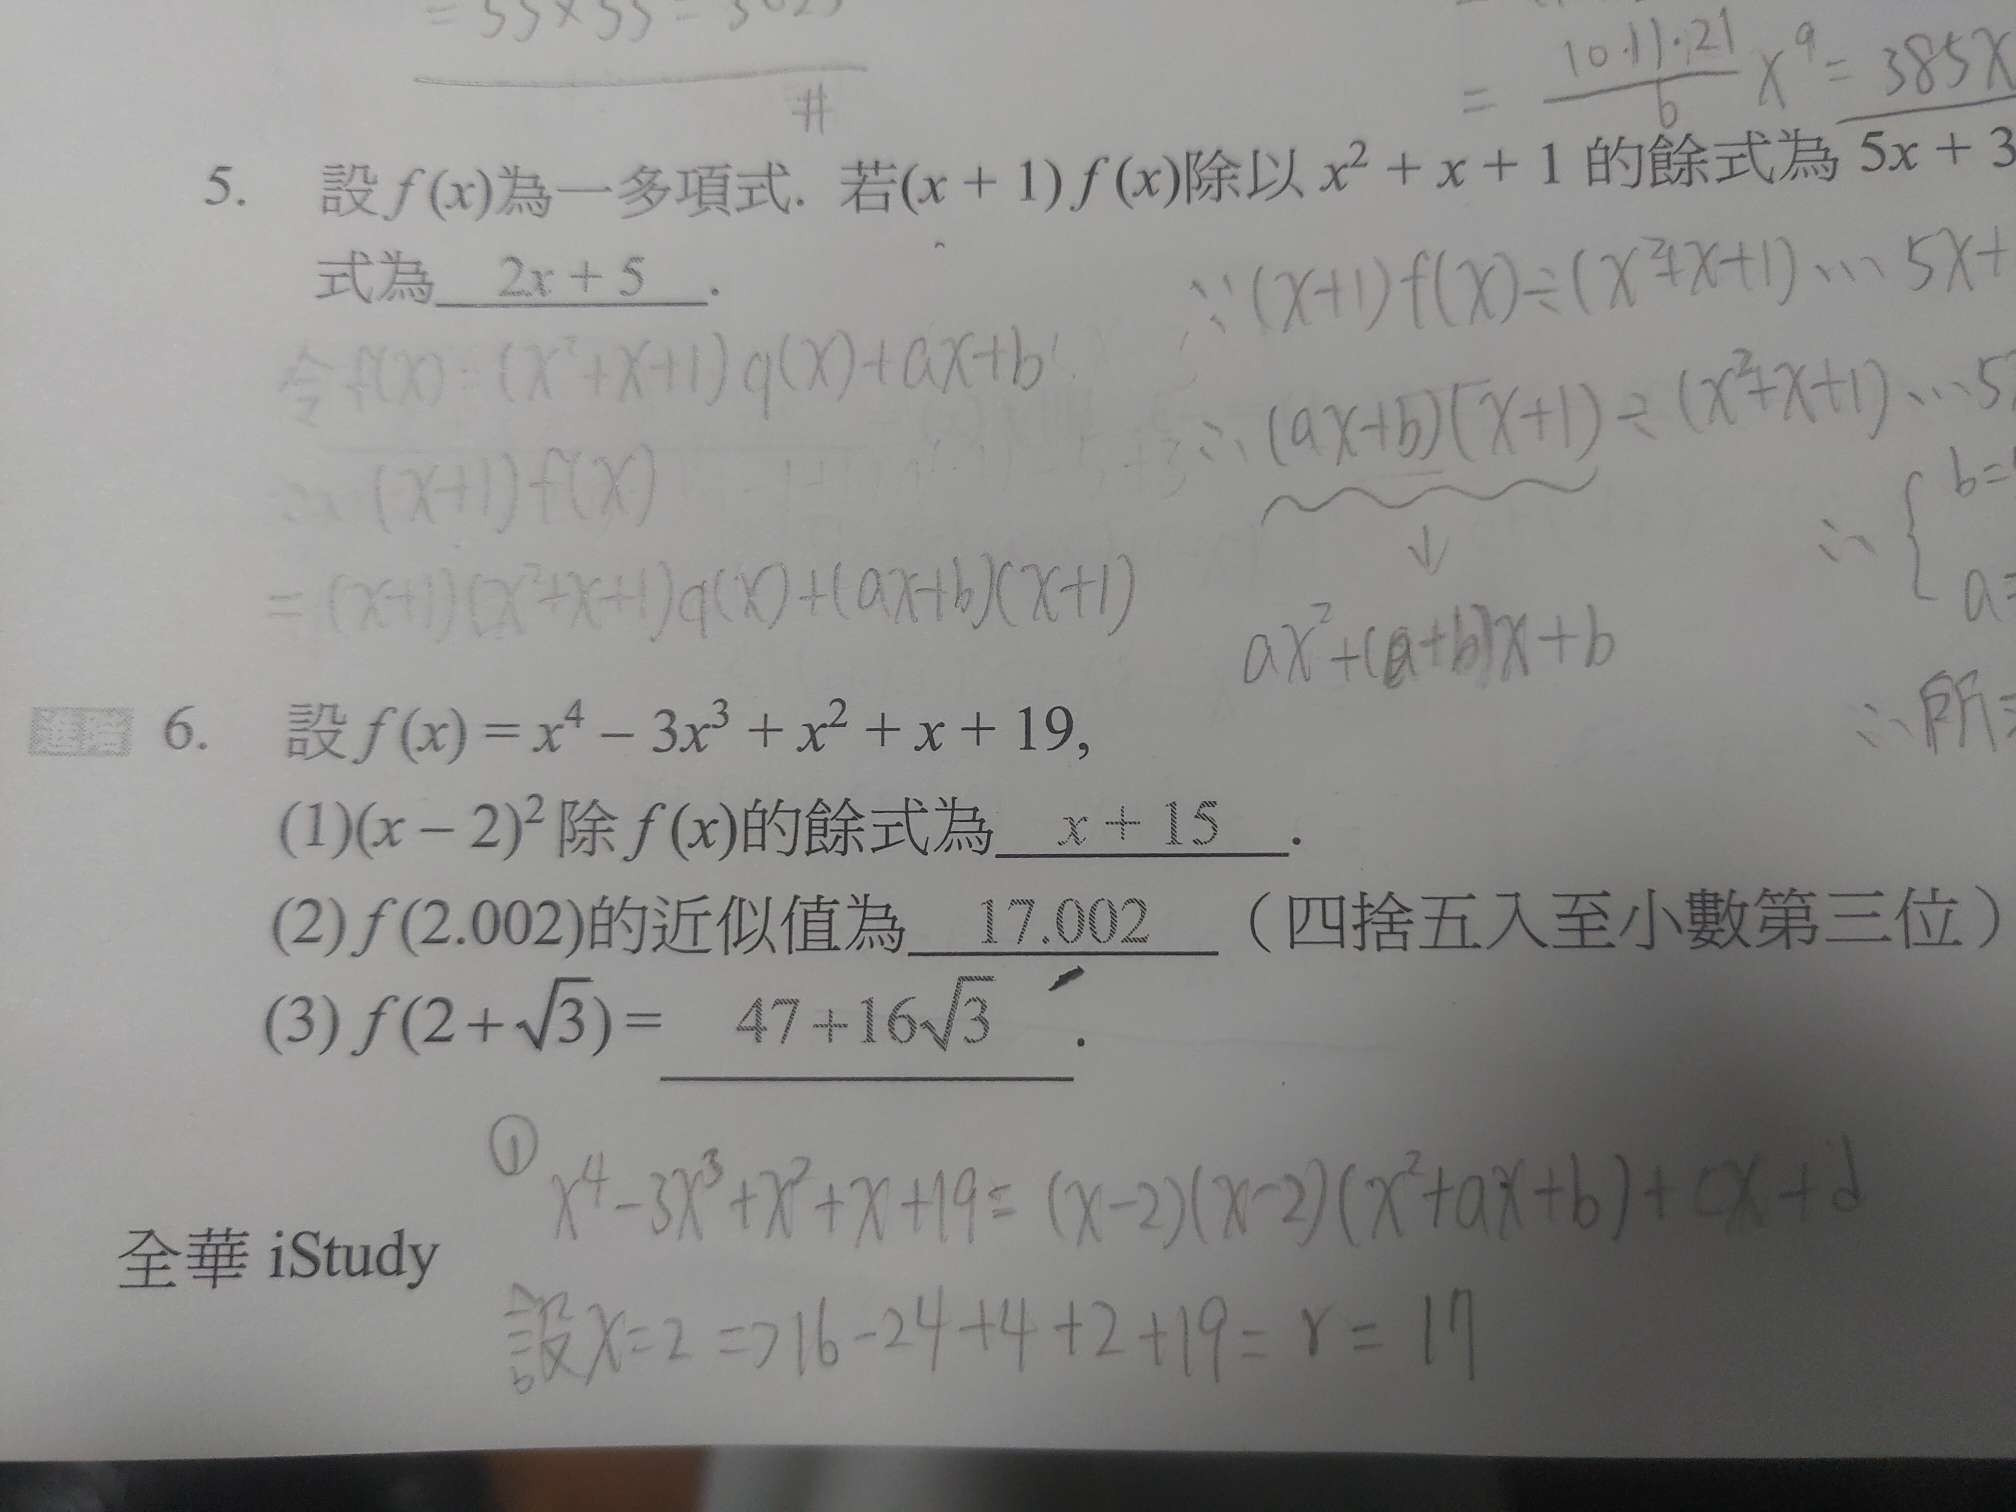 = 55×55 = 3025
#
= 10·11·21/6 x⁹ = 385x
5. 設 f(x)為一多項式. 若(x + 1) f(x)除以 x² + x + 1 的餘式為 5x + 3
式為 2x + 5 .
∵ (x+1) f(x) ÷ (x²+x+1) ⋯ 5x+
令 f(x) = (x²+x+1) q(x) + ax+b
∴ (ax+b)(x+1) ÷ (x²+x+1) ⋯ 5
(x+1) f(x)
∴ { b=
a=
= (x+1)(x²+x+1) q(x) + (ax+b)(x+1)
↓
ax²+(a+b)x+b
∴ 所
6. 設 f(x) = x⁴ – 3x³ + x² + x + 19,
(1)(x – 2)² 除 f(x)的餘式為 x + 15 .
(2) f(2.002)的近似值為 17.002 （四捨五入至小數第三位）
(3) f(2+√3) = 47+16√3 .
① x⁴-3x³+x²+x+19 = (x-2)(x-2)(x²+ax+b)+cx+d
全華 iStudy
設x=2 => 16-24+4+2+19 = r = 17